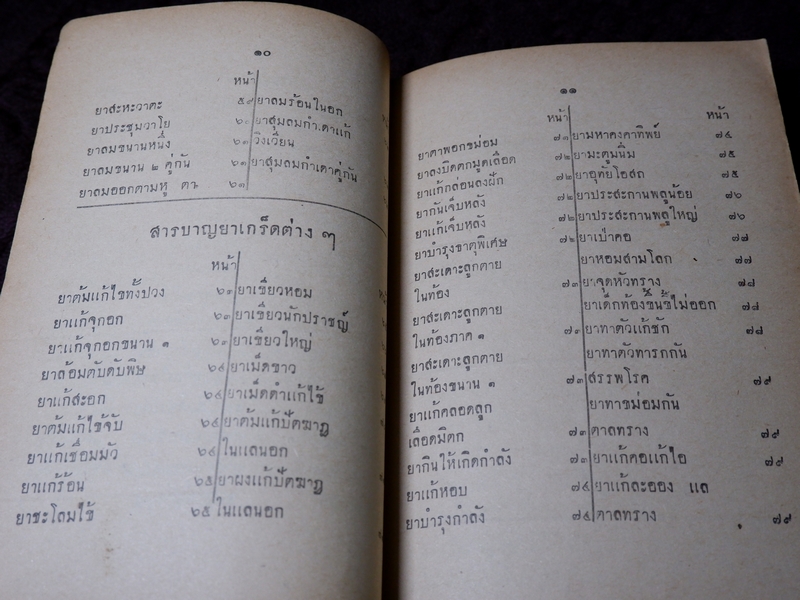 ๑๐
หน้า
ยาสะหะวาตะ ๕๙
ยาประชุมวาโย ๖๐
ยาลมขนานหนึ่ง ๖๑
ยาลมขนาน ๒ คู่กัน ๖๑
ยาลมออกตามหู ตา ๖๑
ยาลมร้อนในอก
ยาสุมลมกำ.ดาแก้
วิงเวียน
ยาสุมลมกำเดาคู่กัน
สารบาญยาเกร็ดต่าง ๆ
หน้า
ยาต้มแก้ไข้ทั้งปวง ๖๓
ยาแก้จุกอก ๖๓
ยาแก้จุกอกขนาน ๑ ๖๓
ยาล้อมตับดับพิษ ๖๔
ยาแก้สะอก ๖๔
ยาต้มแก้ไข้จับ ๖๔
ยาแก้เชื่อมมัว ๖๔
ยาแก้ร้อน ๖๕
ยาชะโลมไข้ ๖๕
ยาเขียวหอม
ยาเขียวนักปราชญ์
ยาเขียวใหญ่
ยาเม็ดขาว
ยาเม็ดดำแก้ไข้
ยาต้มแก้ปัตฆาฏ
ในแลนอก
ยาผงแก้ปัตฆาฏ
ในแลนอก
๑๑
หน้า
ยาตาพอกขม่อม ๗๑
ยาลงบิดตกมูดเลือด ๗๒
ยาแก้กล่อนลงฝัก ๗๒
ยากันเจ็บหลัง ๗๒
ยาแก้เจ็บหลัง ๗๒
ยาบำรุงธาตุพิเศษ ๗๒
ยาสะเดาะลูกตาย
ในท้อง ๗๓
ยาสะเดาะลูกตาย
ในท้องภาค ๑ ๗๓
ยาสะเดาะลูกตาย
ในท้องขนาน ๑ ๗๓
ยาแก้คลอดลูก
เลือดมิตก ๗๓
ยากินให้เกิดกำลัง ๗๓
ยาแก้หอบ ๗๔
ยาบำรุงกำลัง ๗๔
หน้า
ยามหาคงคาทิพย์ ๗๔
ยามะตูมนิ่ม ๗๕
ยาอุทัยโอสถ ๗๕
ยาประสะกานพลูน้อย ๗๖
ยาประสะกานพลูใหญ่ ๗๖
ยาเป่าคอ ๗๗
ยาหอมสามโลก ๗๗
ยาจุดหัวทราง ๗๘
ยาเด็กท้องขึ้นขี้ไม่ออก ๗๘
ยาทาตัวแก้ชัก ๗๘
ยาทาตัวทารกกัน
สรรพโรค ๗๙
ยาทาขม่อมกัน
ตาลทราง ๗๙
ยาแก้คอแก้ไอ ๗๙
ยาแก้ละออง แล
ตาลทราง ๗๙